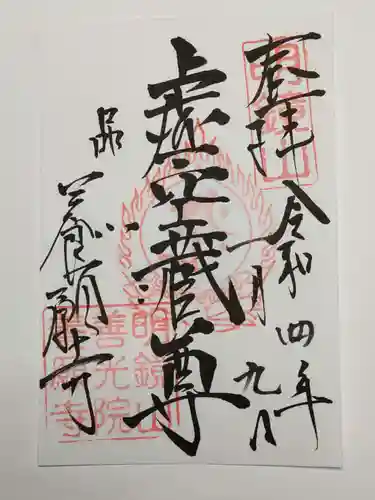 奉拝
明鏡山
令和四年
一月九日
虚空蔵尊
品川
養願寺
明鏡山
善光院
養願寺